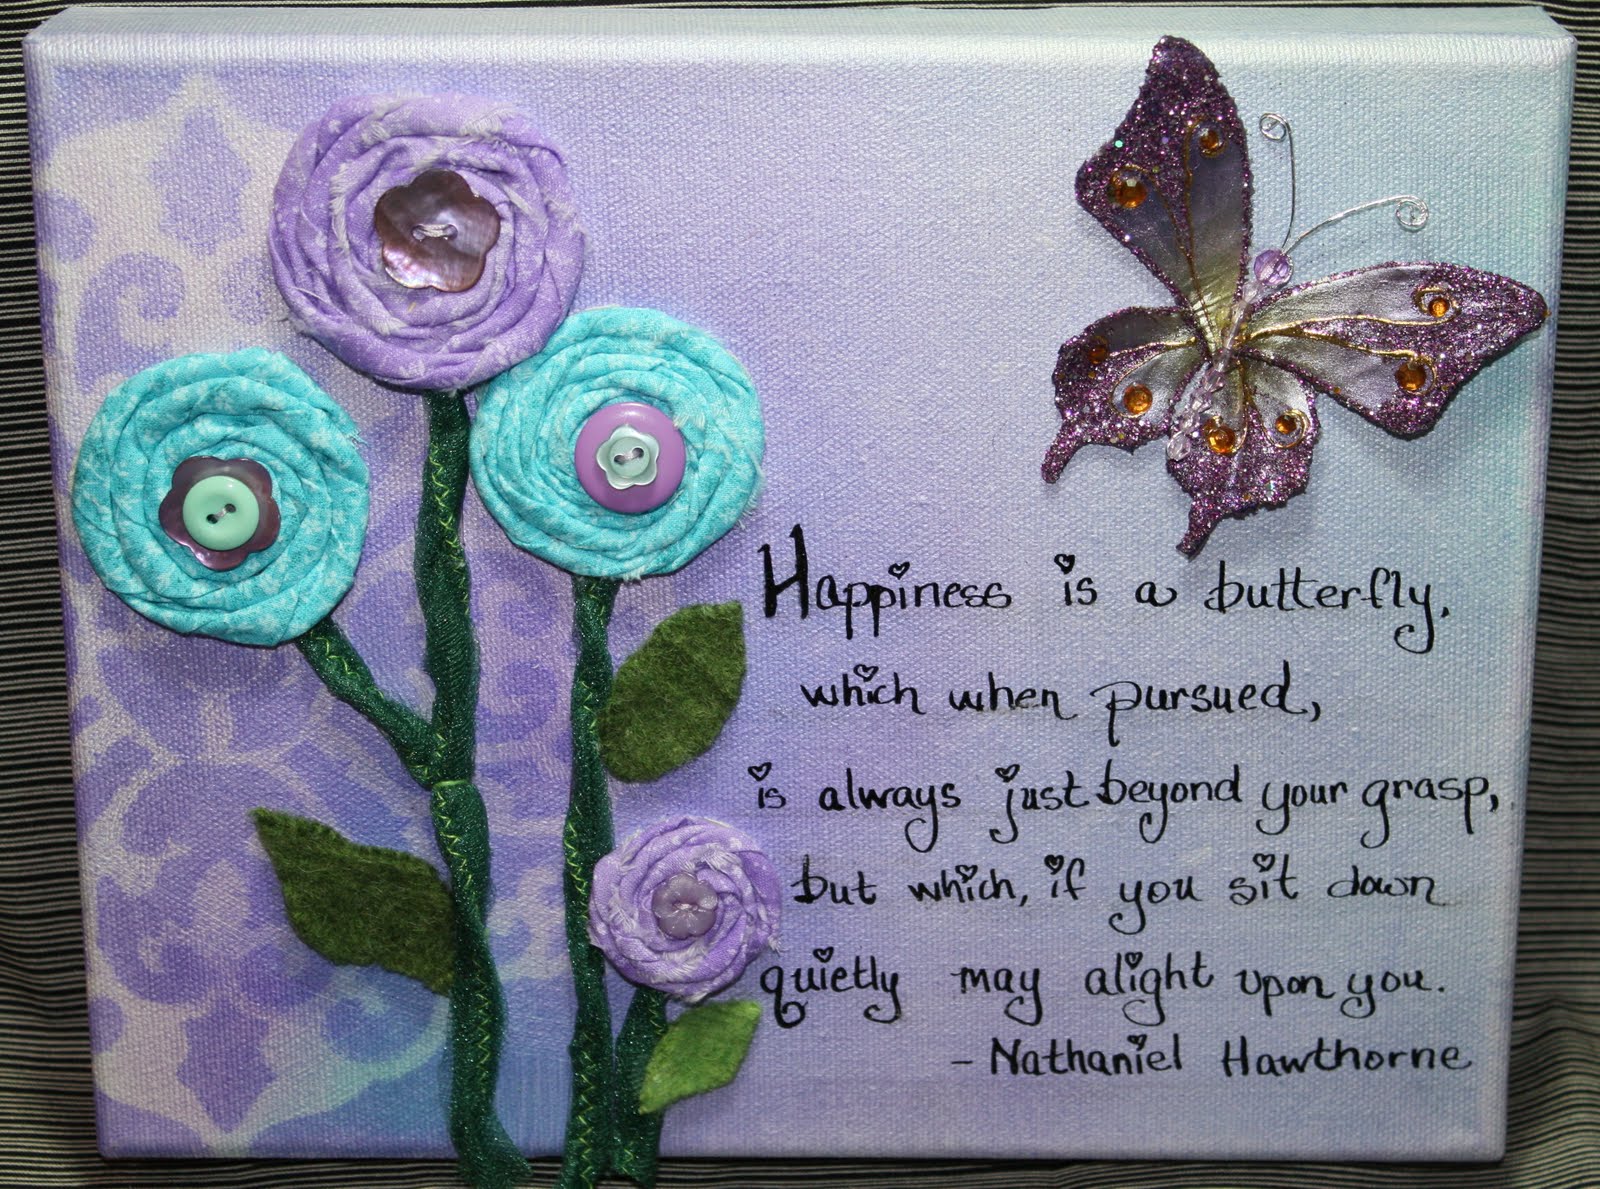 Happiness is a butterfly,
which when pursued,
is always just beyond your grasp,
but which, if you sit down
quietly may alight upon you.
- Nathaniel Hawthorne